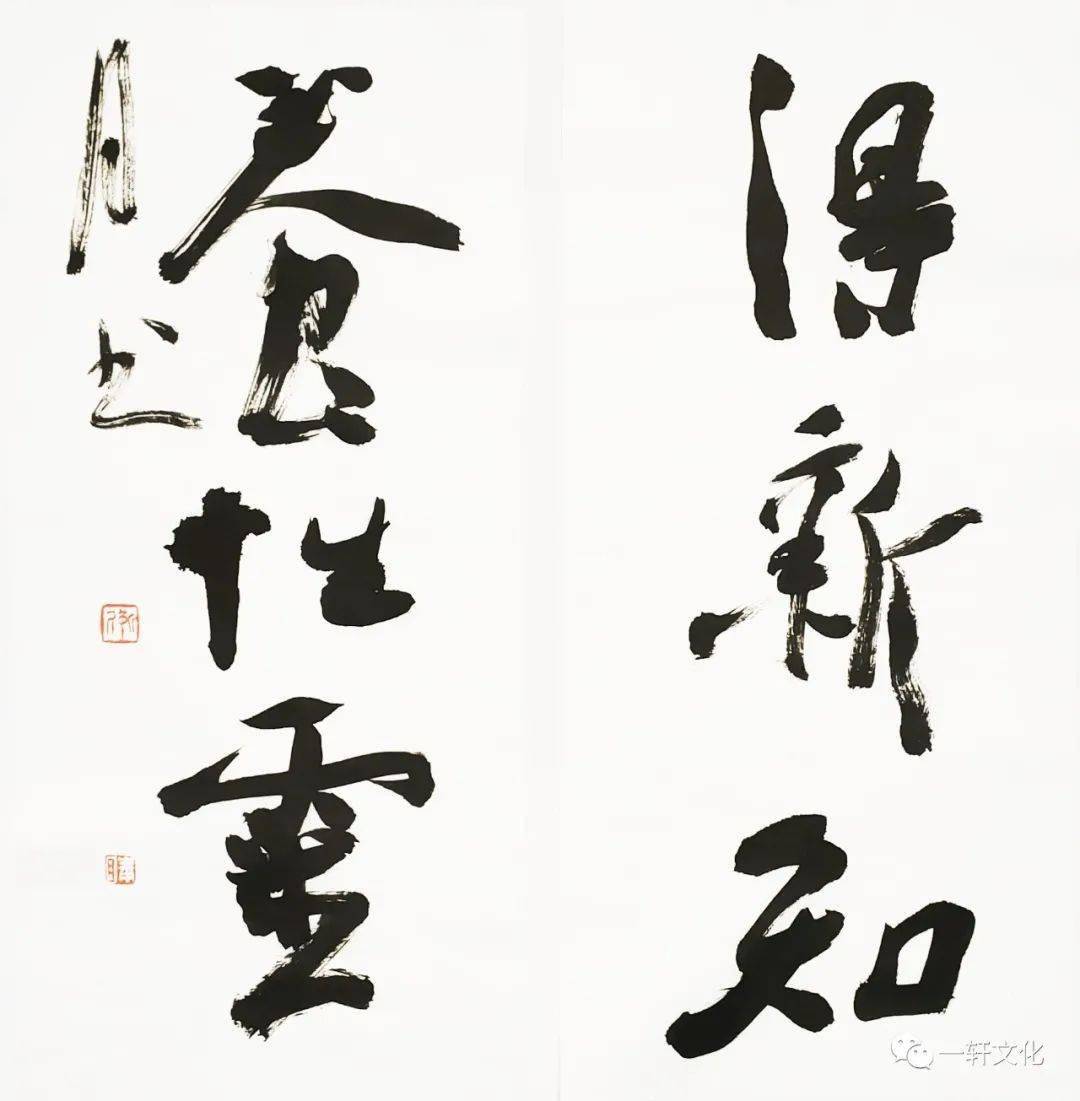 得新知
養性靈
月 书
一轩文化